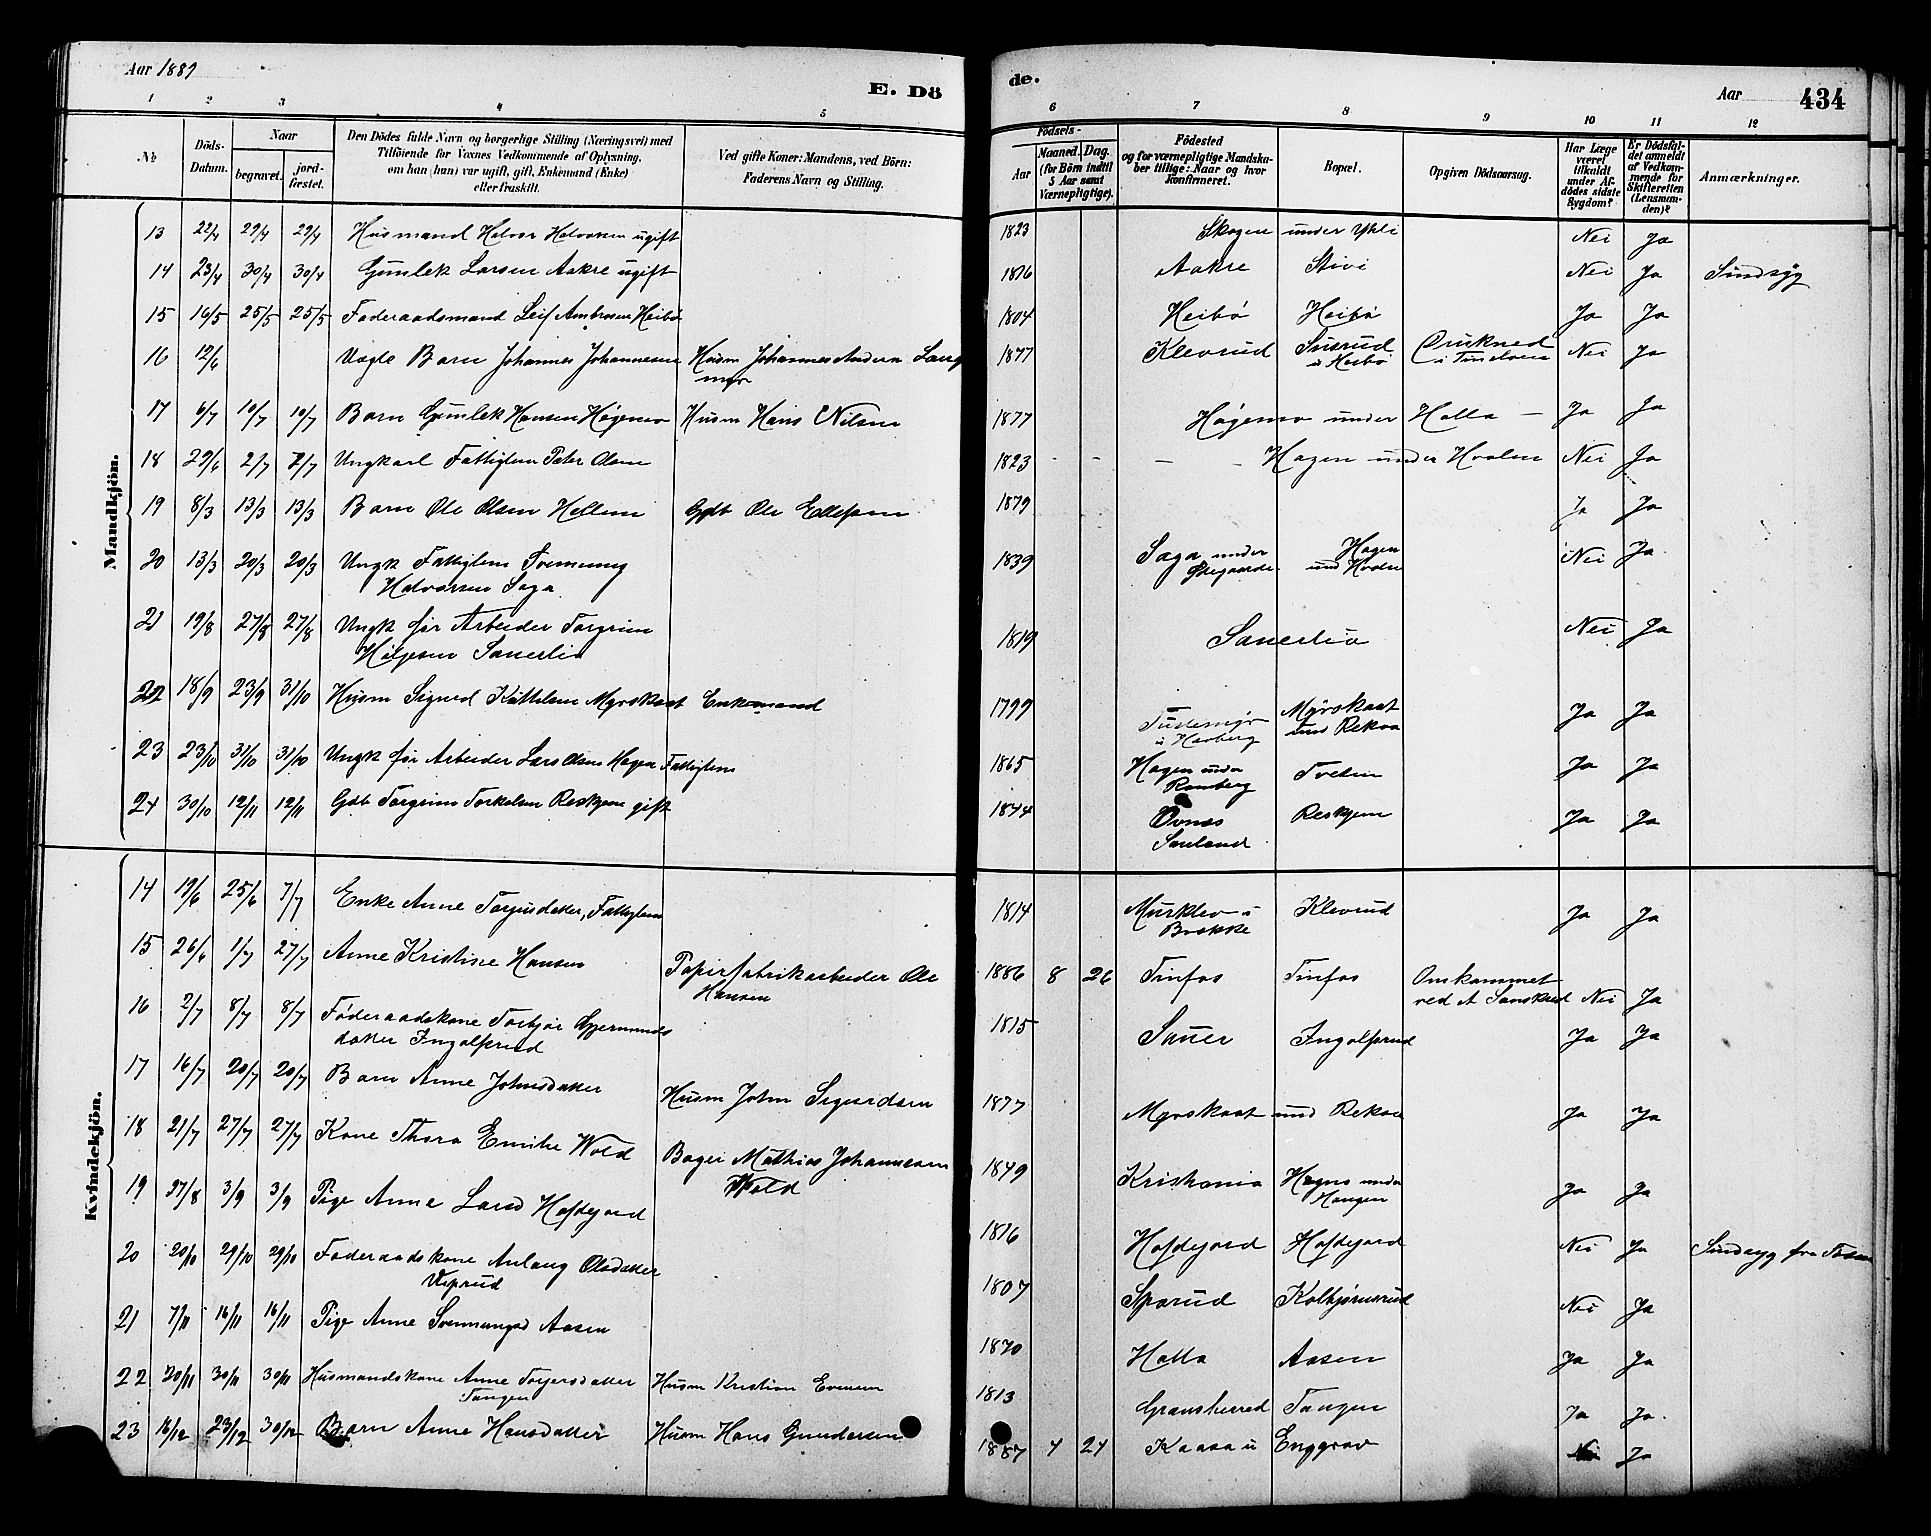 Aar 1887
E. Dö
de.
Aar
434
1 2 3 4 5
6 7 8 9 10 11 12
No
Döds-Datum.
Naar
begravet.
jord-fæstet.
Den Dödes fulde Navn og borgerlige Stilling (Næringsvei) med
Tilföiende for Voxnes Vedkommende af Oplysning,
om han (hun) var ugift, gift, Enkemand (Enke)
eller fraskilt.
Ved gifte Koner: Mandens, ved Börn:
Faderens Navn og Stilling.
Födsels-
Aar
Maaned. Dag.
(for Börn indtil
5 Aar samt
Værnepligtige).
Födested
og for værnepligtige Mandska-
ber tillige: Naar og hvor
Konfirmeret.
Bopæl.
Opgiven Dödsaarsag.
Har Læge
været
tilkaldt
under Af-
dödes sidste
Sygdom?
Er Dödsfal-
det anmeldt
af Vedkom-
mende for
Skifteretten
(Lensman-
den)?
Anmærkninger.
Mandkjön.
13 22/4 29/4 29/4 Husmand Halvor Halvorsen ugift 1823 Skogen under Nei Ja
14 23/4 30/4 30/4 Gunlek Larsen Aakre ugift 1816 Aakre Stivi Nei Ja Sindsyg
15 16/5 25/5 25/5 Føderaadsmand Leif Ambrosen Heibø 1804 Heibø Heibø Ja Ja
16 12/6 Uægte Barn Johannes Johannesen Husm Johannes Andersn 1877 Klevrud Susrud u Heibø Druknet i Tinelven Nei Ja
17 6/7 10/7 10/7 Barn Gunlek Hansen Høgemo Husm Hans Nilsen 1877 Høgemo under Holla — Ja Ja
18 29/6 2/7 2/7 Ungkarl Fattiglem Peter Olsen 1823 - - - - Hagen under Hvalen Nei Ja
19 8/3 13/3 13/3 Barn Ole Olsen Hellem Gdb Ole Ellefsen 1879 Ja Ja
20 13/3 20/3 20/3 Ungk Fattiglem Svennung
Halvorsen Saga 1839 Saga under Øvegaarde Hagen und Hvalen Nei Ja
21 19/8 27/8 27/8 Ungk før Arbeider Torgrim
Høljesen Sauerlia 1819 Sauerlia Nei Ja
22 18/9 23/9 31/10 Husm Sigurd Kittelsen Myrskaat Enkemand 1799 Myrskaat und Rekaa Ja Ja
23 23/10 31/10 31/10 Ungk før Arbeider Lars Olsen Hagen Fattiglem 1865 Hagen under Ramberg Tveten Ja Ja
24 30/10 12/11 12/11 Gdb Torgrim Torkelsen Reskjem gift 1844 Øvnæs Sauland Reskjem Ja Ja
Kvindekjön.
14 19/6 25/6 7/7 Enke Anne Torjusdatter, Fattiglem 1814 Murklev u Brække Klevrud Ja Ja
15 26/6 1/7 27/7 Anne Kristine Hansen Papirfabrikarbeider Ole
Hansen 1886 8 26 Tinfos Tinfos Omkommet
ved et Sandskred Nei Ja
16 2/7 8/7 8/7 Føderaadskone Torbjør Gjermunds
datter Ingolfsrud 1815 Sauer Ingolfsrud Ja Ja
17 16/7 20/7 20/7 Barn Anne Johnsdatter Husm John Sigurdsen 1877 Myrskaat und Rekaa Ja Ja
18 21/7 27/7 27/7 Kone Thora Emilie Wold Bager Mathias Johannesen
Wold 1849 Kristiania Hagen under Haugen Ja Ja
19 27/8 3/9 3/9 Pige Anne Larsd Hofdejord 1816 Hofdejord Hofdejord Nei Ja Sindsyg
20 20/10 29/10 29/10 Føderaadskone Anlaug Olsdatter
1807 Sparud Kolbjørnsrud Nei Ja
21 7/11 16/11 16/11 Pige Anne Svennungsd Aasen 1870 Holla Aasen Ja Ja
22 20/11 30/11 30/11 Husmandskone Anne Torjersdatter
Tangen Husm Kristian Evensen 1813 Gransherred Tangen Ja Ja.
23 16/12 23/12 30/12 Barn Anne Hansdatter Husm Hans Gundersen 1887 4 24 Kaasa u Enggrav Nei Ja